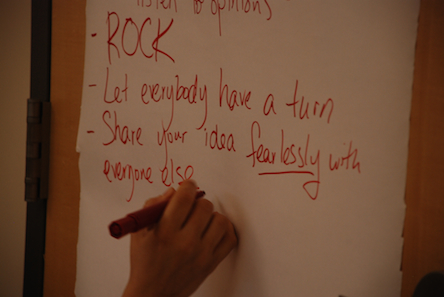 listen to opinions
- ROCK
- Let everybody have a turn
- Share your idea fearlessly with
everyone else